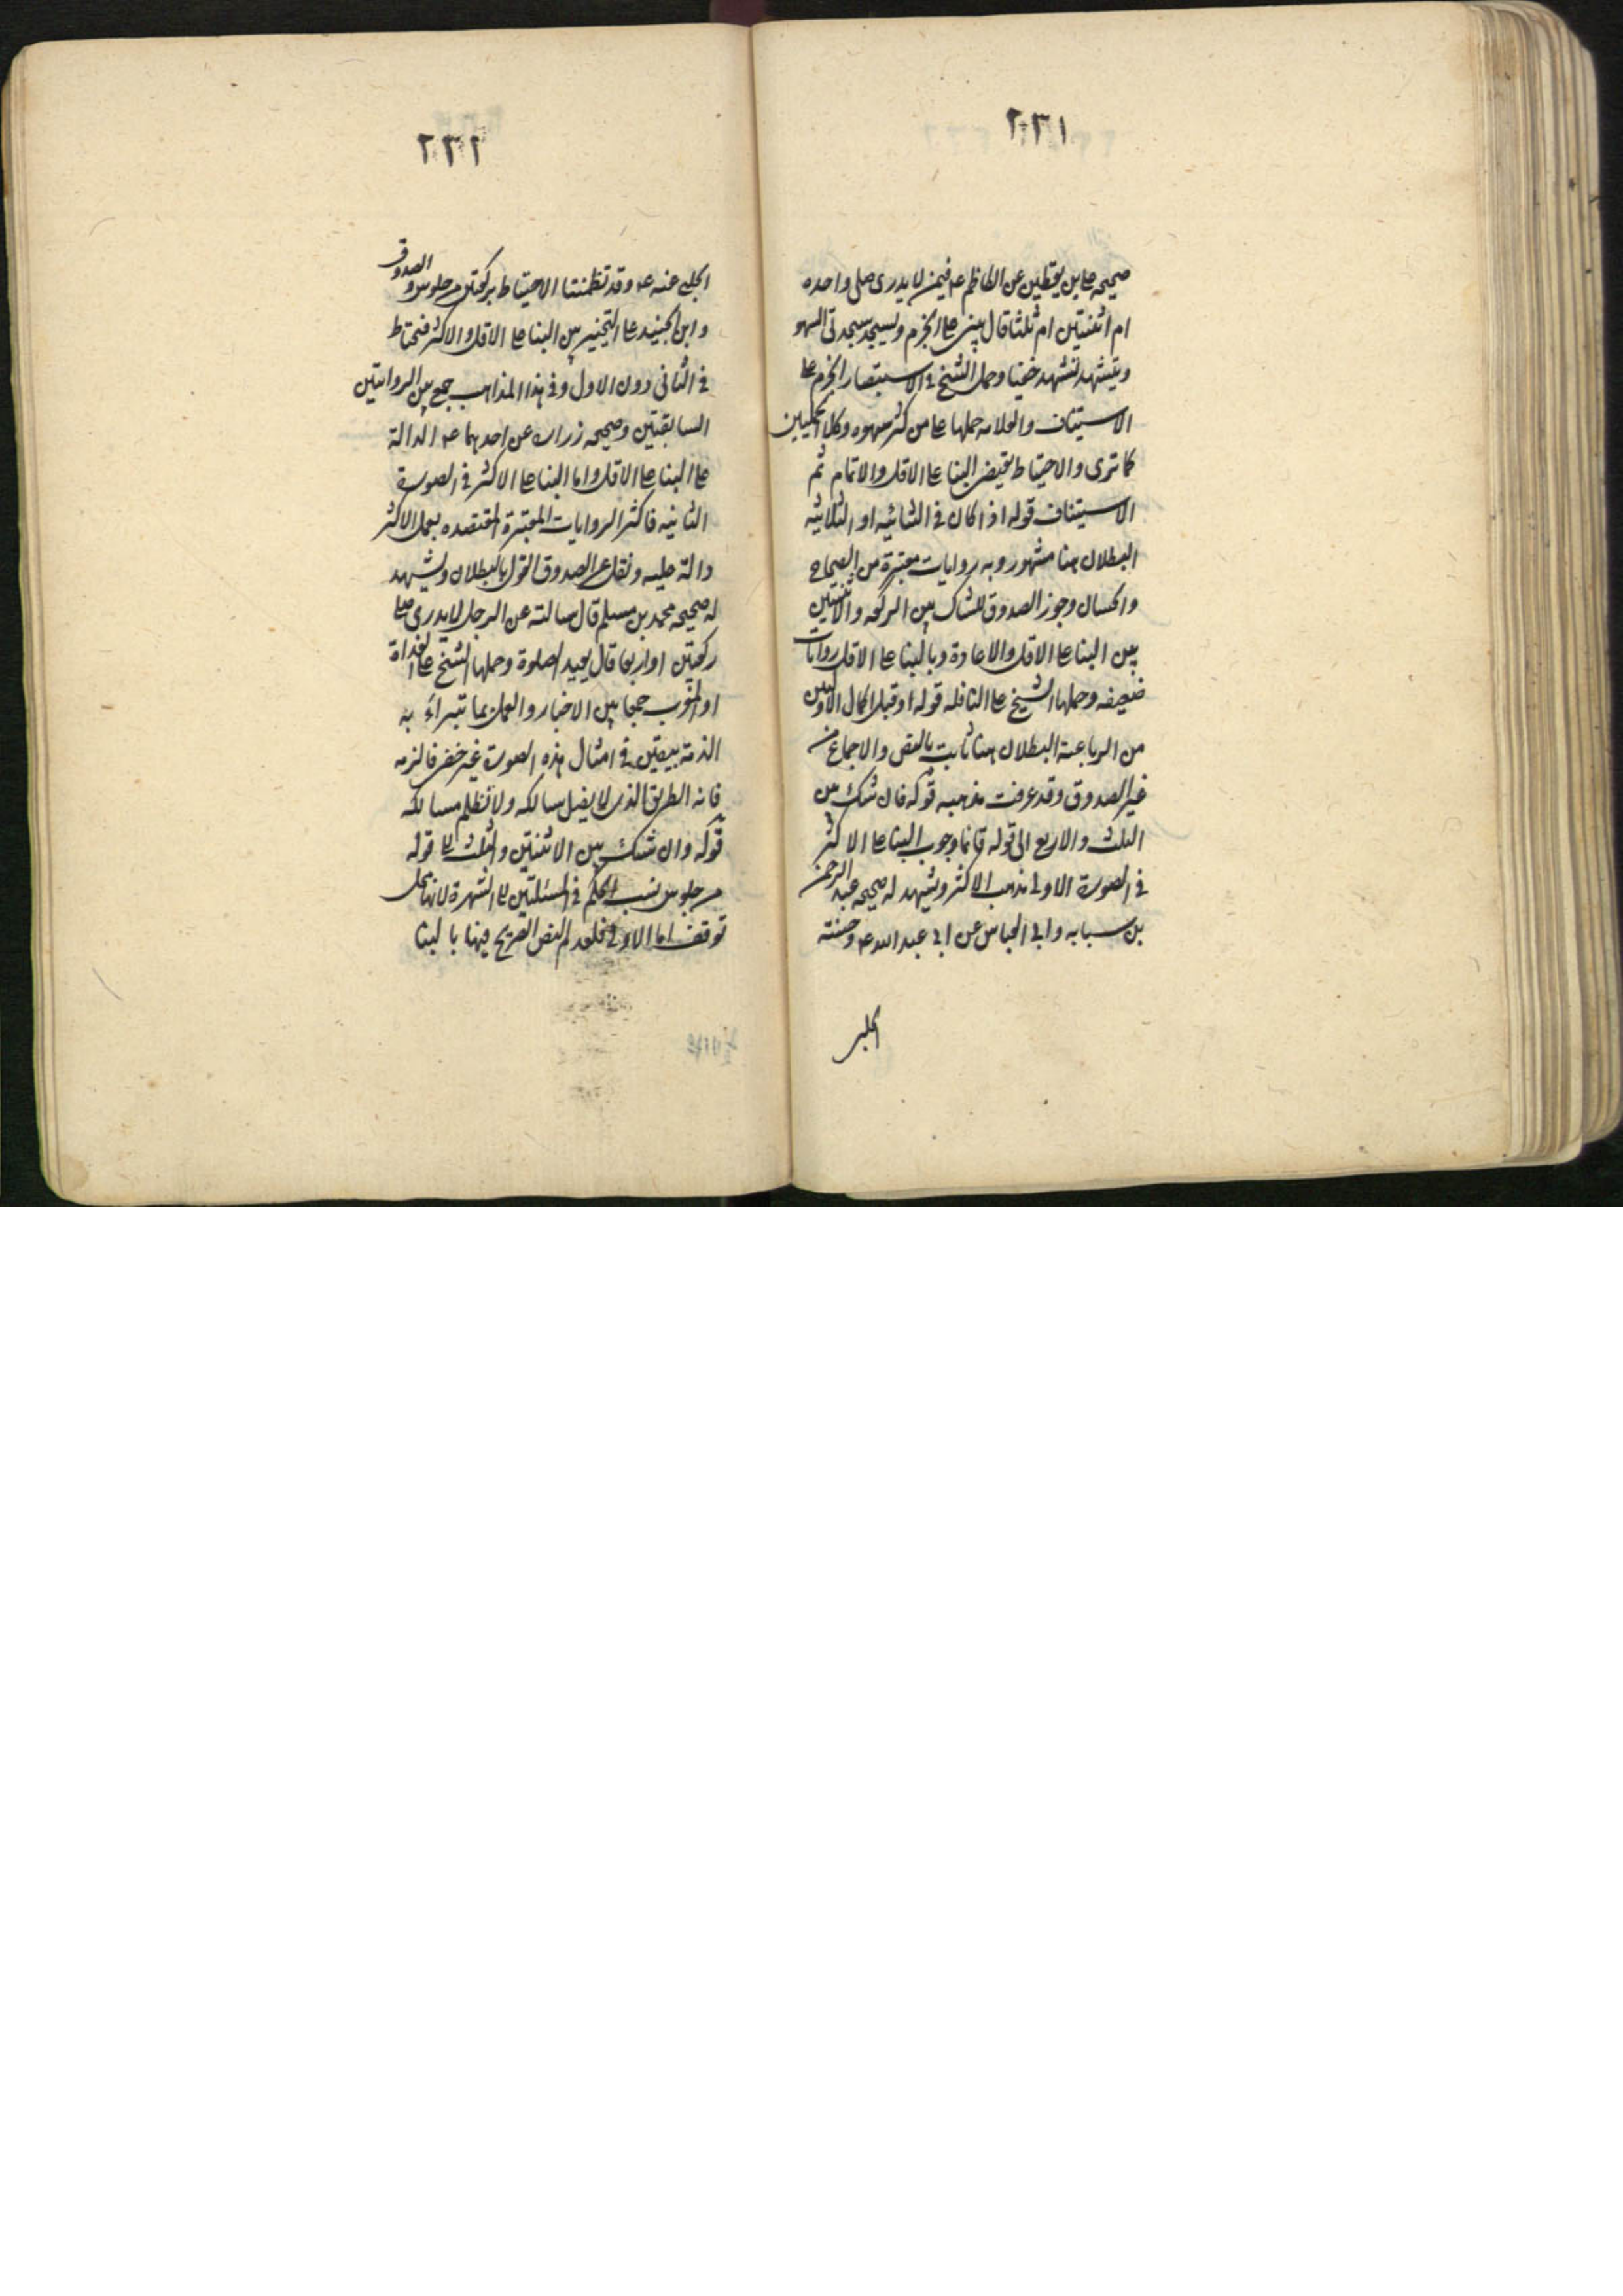 ٢٣١
صحيحه علي بن يقطين عن الكاظم ع فيمن لا يدرى صلى واحده
ام اثنتين ام ثلثا قال يبنى على الجزم ويسجد سجدتى السهو
ويتشهد تشهد خفيفا وحمل الشيخ في الاستبصار الجزم على
الاستيناف والعلامه حملها على من كثر سهوه وكلا الحملين
كما ترى والاحتياط يقتضى البنا على الاقل والاتمام ثم
الاستيناف قوله اذا كان في الثنائيه او الثلاثيه
البطلان هنا مشهور وبه روايات معتبرة من الصحاح
والحسان وجوز الصدوق للشاك بين الركعه والاثنتين
بين البنا على الاقل والاعادة وبالبنا على الاقل روايات
ضعيفه وحملها الشيخ على النافله قوله او قبل اكمال الاولتين
من الرباعية البطلان هنا ثابت بالنص والاجماع من
غير الصدوق وقد عرفت مذهبه قوله فان شك بين
الثلث والاربع الى قوله قائما وجوب البنا على الاكثر
في الصورة الاولى مذهب الاكثر ويشهد له صحيحه عبد الرحمن
بن سبابه وابى العباس عن ابى عبد الله ع وحسنته
الحلبى
٢٣٢
الحلبى عنه ع وقد تظمنتا الاحتياط بركعتين من جلوس والصدوق
وابن الجنيد على التخيير بين البنا على الاقل والاكثر فيحتاط
في الثانى دون الاول وفي هذا المذاهب جمع بين الروايتين
السابقتين وصحيحه زراره عن احدهما ع الدالة
على البنا على الاقل واما البنا على الاكثر في الصورة
الثانيه فاكثر الروايات المعتبرة المعتضده بعمل الاكثر
دالة عليه ونقل عن الصدوق القول بالبطلان ويشهد
له صحيحه محمد بن مسلم قال سالته عن الرجل لا يدرى صلى
ركعتين او اربعا قال يعيد الصلوة وحملها الشيخ على الغداة
او المغرب جمعا بين الاخبار والعمل بما تبراء به
الذمة بيقين في امثال هذه الصورة غير خفى فالزمه
فانه الطريق الذى لا يضل سالكه ولا تظلم مسالكه
قوله وان شك بين الاثنتين والثلث الى قوله
من جلوس نسب الحكم في المسئلتين الى الشهرة لانها محل
توقف اما الاولى فلعدم النص الصريح فيها بالبنا